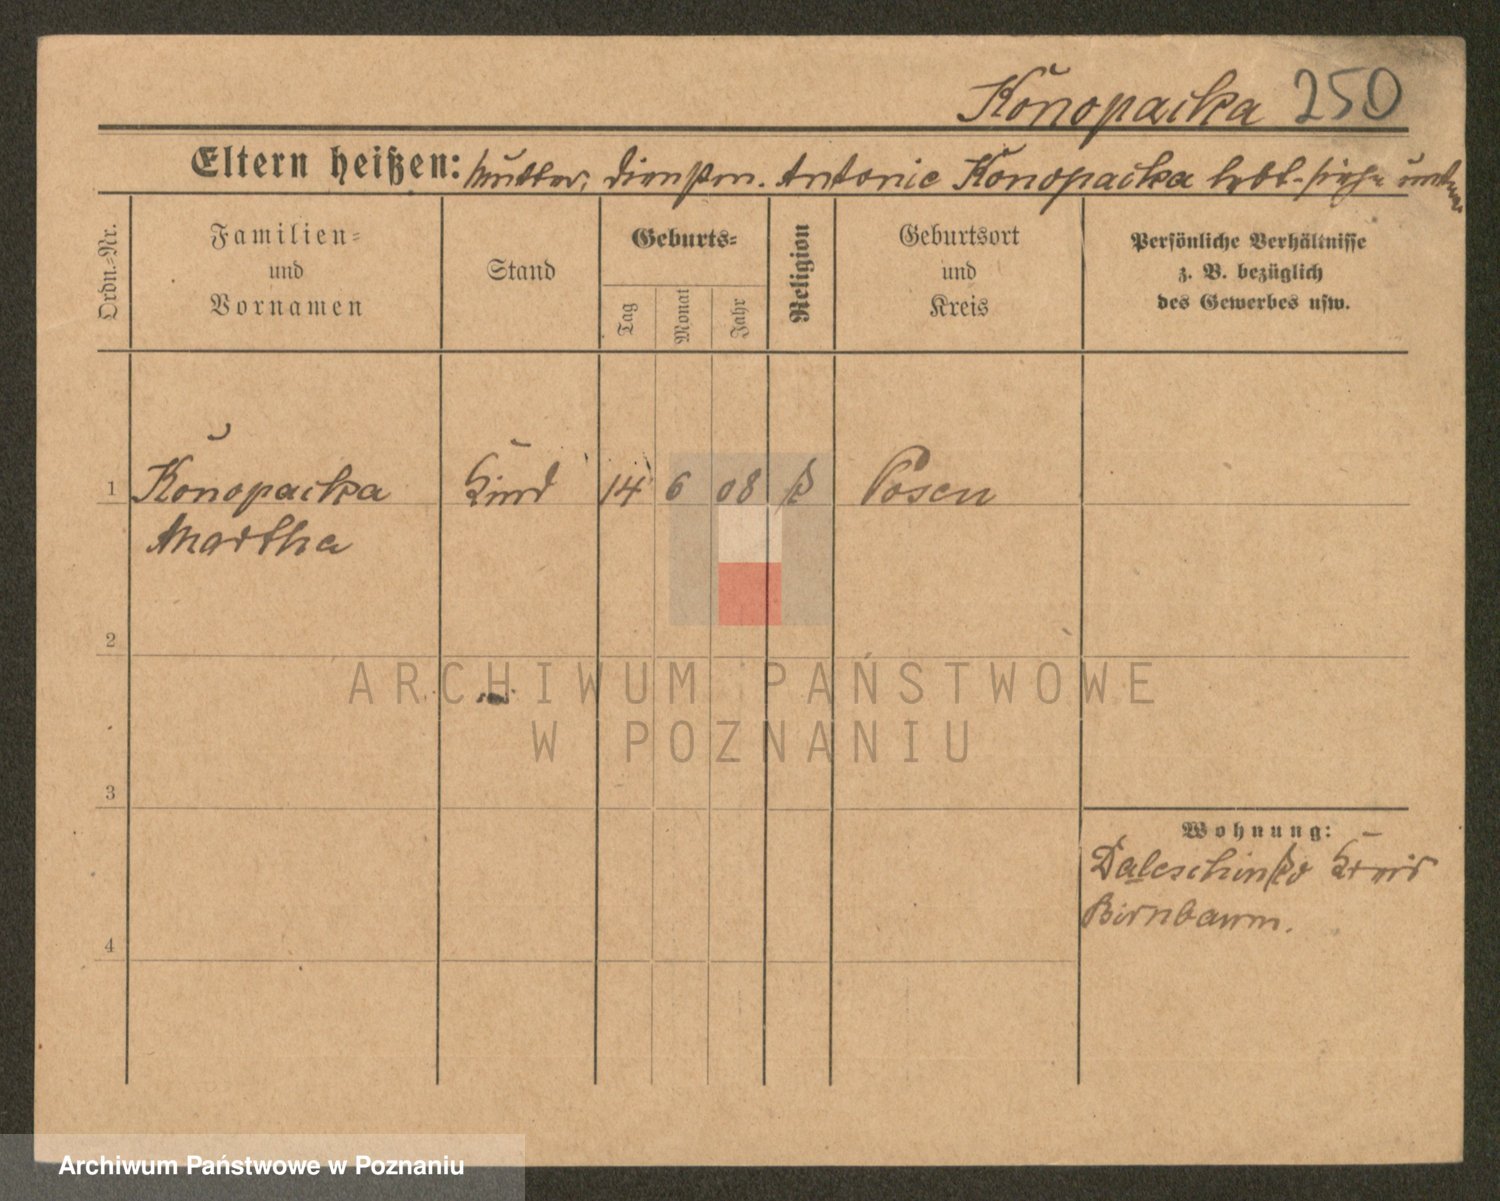 Konopacka 250
Eltern heißen: Mutter, Dienstm. Antonie Konopacka lebt siehe unten
Ordn.-Nr.
Familien-
und
Vornamen
Stand
Geburts-
Tag
Monat
Jahr
Religion
Geburtsort
und
Kreis
Persönliche Verhältnisse
z. B. bezüglich
des Gewerbes usw.
1 Konopacka Kind 14 6 08 k Posen
Martha
2
ARCHIWUM PAŃSTWOWE
W POZNANIU
3
Wohnung:
Kreis
Birnbaum.
4
Archiwum Państwowe w Poznaniu